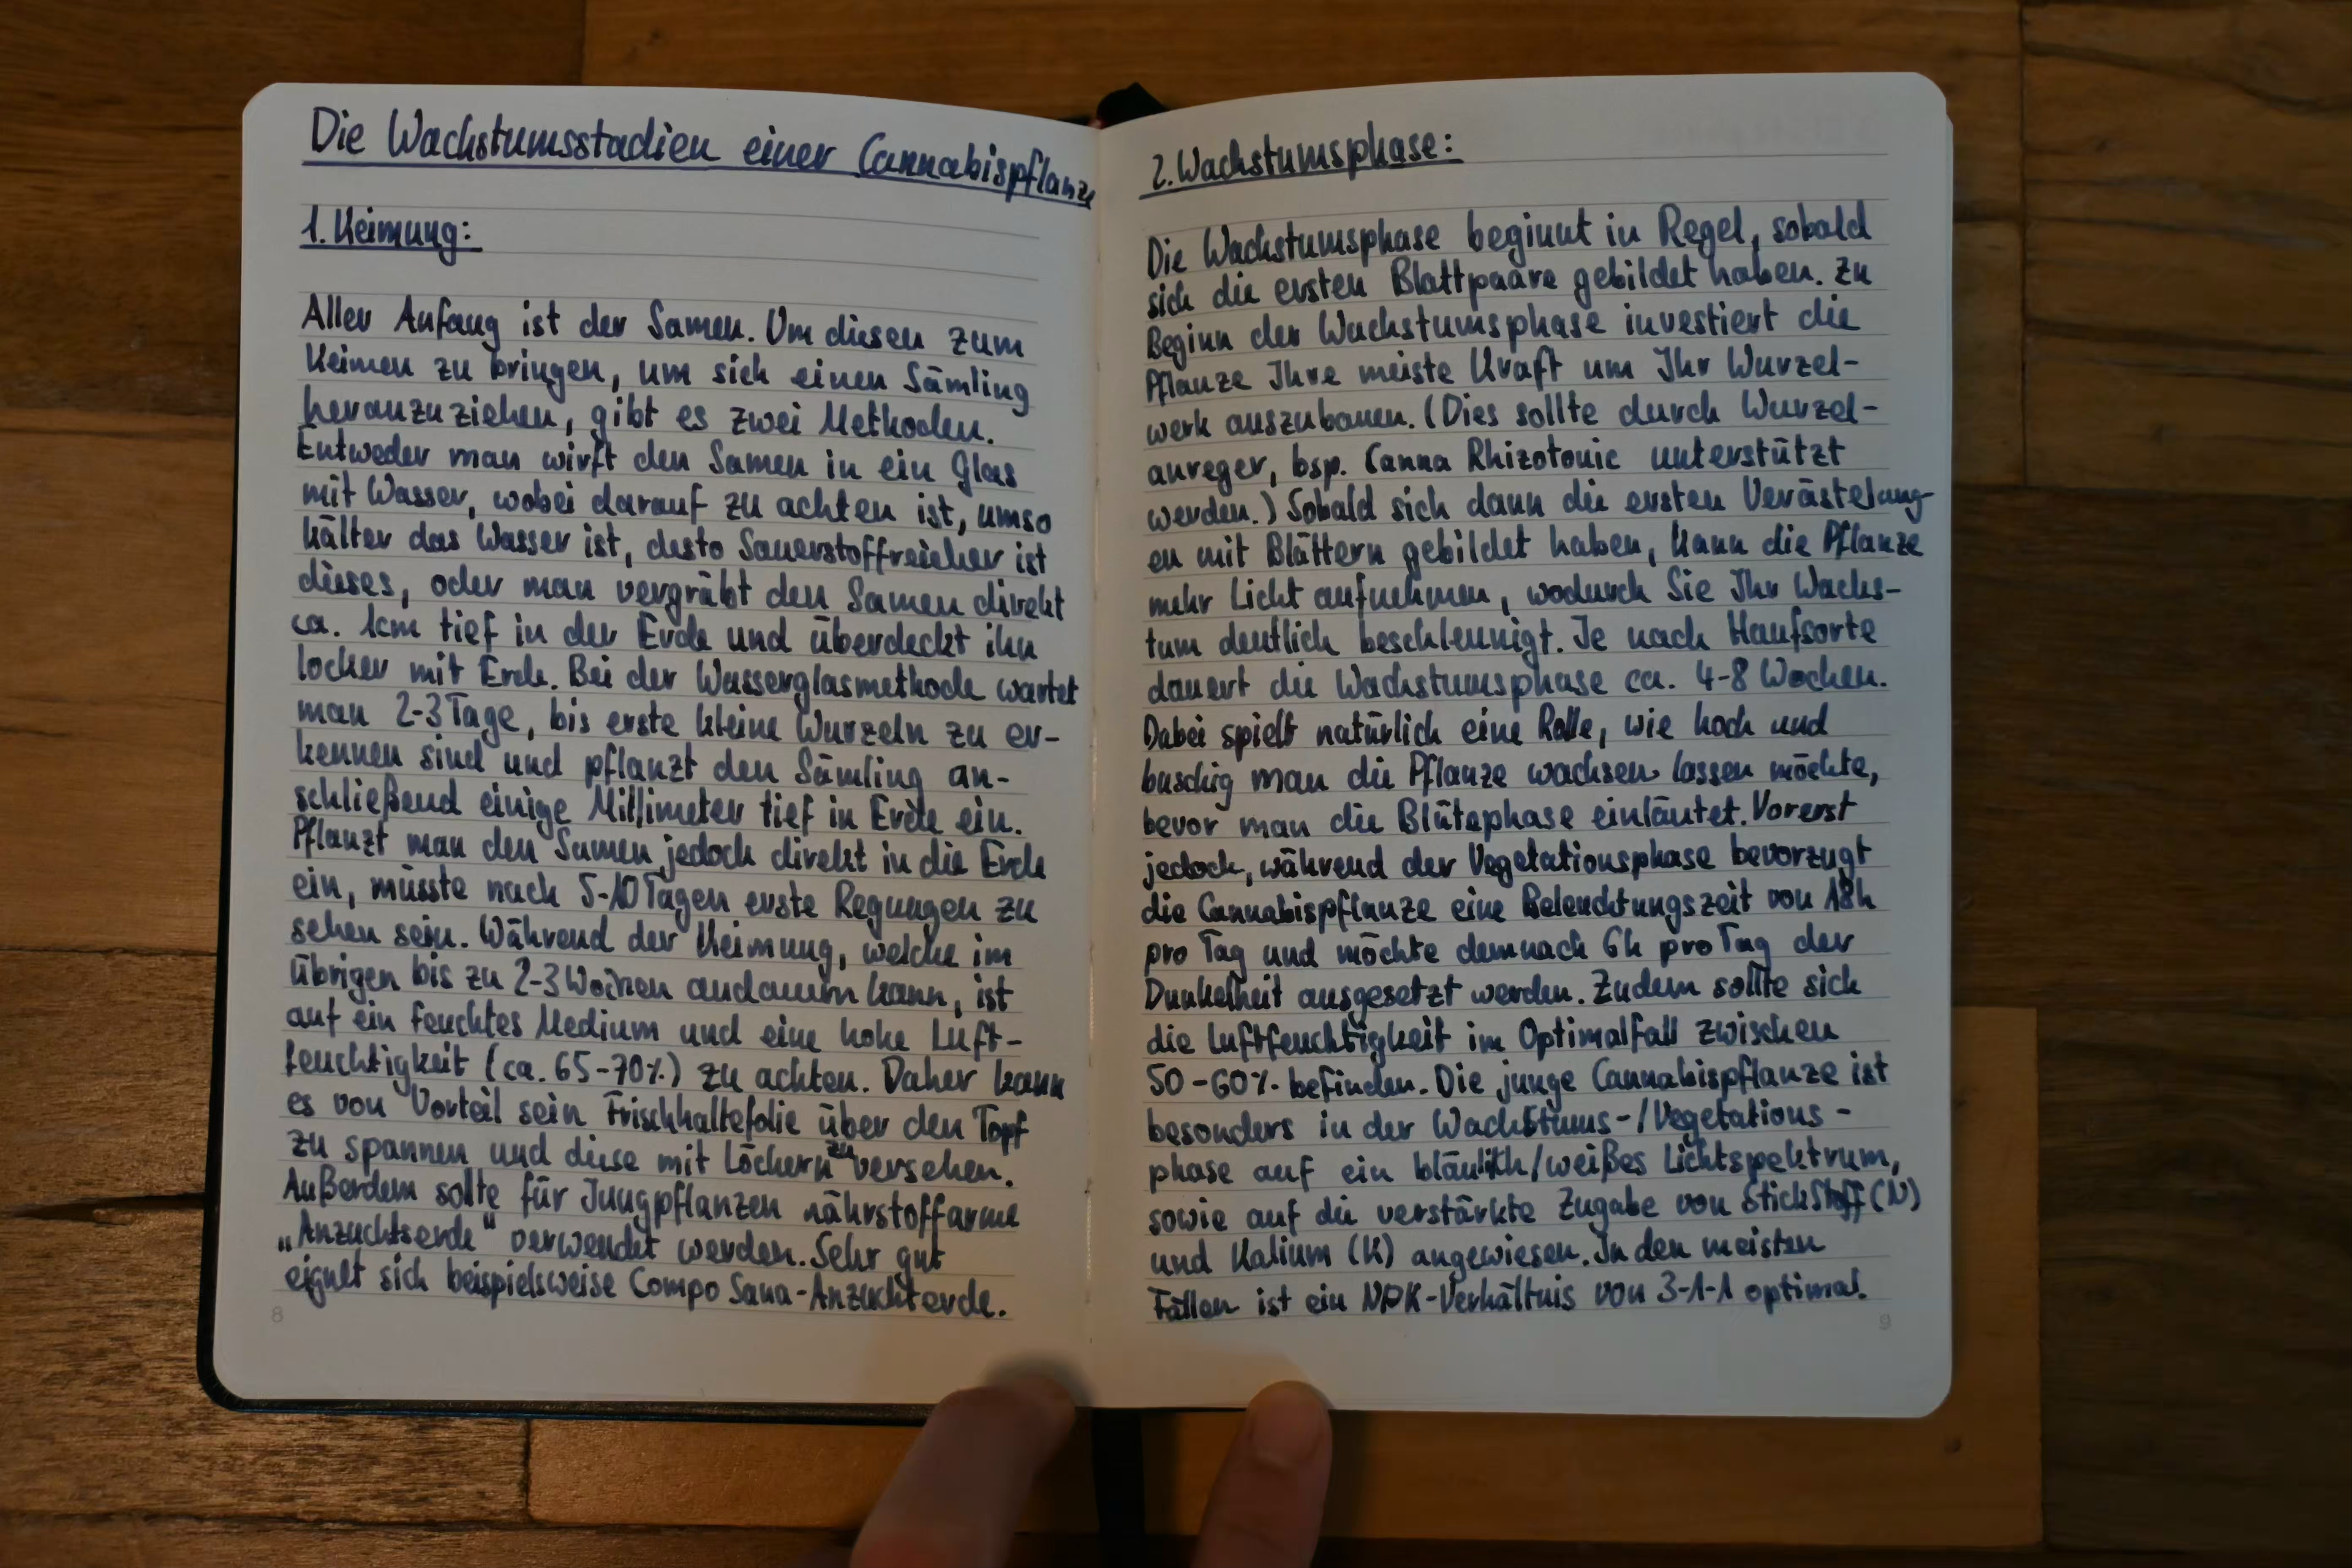 Die Wachstumsstadien einer Cannabispflanze
1. Keimung:
Aller Anfang ist der Samen. Um diesen zum
Keimen zu bringen, um sich einen Sämling
heranzuziehen, gibt es zwei Methoden.
Entweder man wirft den Samen in ein Glas
mit Wasser, wobei darauf zu achten ist, umso
kälter das Wasser ist, desto Sauerstoffreicher ist
dieses, oder man vergräbt den Samen direkt
ca. 1cm tief in der Erde und überdeckt ihn
locker mit Erde. Bei der Wasserglasmethode wartet
man 2-3 Tage, bis erste kleine Wurzeln zu er-
kennen sind und pflanzt den Sämling an-
schließend einige Millimeter tief in Erde ein.
Pflanzt man den Samen jedoch direkt in die Erde
ein, müsste nach 5-10 Tagen erste Regungen zu
sehen sein. Während der Keimung, welche im
übrigen bis zu 2-3 Wochen andauern kann, ist
auf ein feuchtes Medium und eine hohe Luft-
feuchtigkeit (ca. 65-70%) zu achten. Daher kann
es von Vorteil sein Frischhaltefolie über den Topf
zu spannen und diese mit Löchern zu versehen.
Außerdem sollte für Jungpflanzen nährstoffarme
„Anzuchtserde" verwendet werden. Sehr gut
eignet sich beispielsweise Compo Sana-Anzuchterde.
8
2. Wachstumsphase:
Die Wachstumsphase beginnt in Regel, sobald
sich die ersten Blattpaare gebildet haben. Zu
Beginn der Wachstumsphase investiert die
Pflanze Ihre meiste Kraft um Ihr Wurzel-
werk auszubauen. (Dies sollte durch Wurzel-
anreger, bsp. Canna Rhizotonic unterstützt
werden.) Sobald sich dann die ersten Verästelung-
en mit Blättern gebildet haben, kann die Pflanze
mehr Licht aufnehmen, wodurch Sie Ihr Wachs-
tum deutlich beschleunigt. Je nach Hanfsorte
dauert die Wachstumsphase ca. 4-8 Wochen.
Dabei spielt natürlich eine Rolle, wie hoch und
buschig man die Pflanze wachsen lassen möchte,
bevor man die Blütephase einläutet. Vorerst
jedoch, während der Vegetationsphase bevorzugt
die Cannabispflanze eine Beleuchtungszeit von 18h
pro Tag und möchte demnach 6h pro Tag der
Dunkelheit ausgesetzt werden. Zudem sollte sich
die Luftfeuchtigkeit im Optimalfall zwischen
50-60% befinden. Die junge Cannabispflanze ist
besonders in der Wachstums-/Vegetations-
phase auf ein bläulich/weißes Lichtspektrum,
sowie auf die verstärkte Zugabe von Stickstoff (N)
und Kalium (K) angewiesen. In den meisten
Fällen ist ein NPK-Verhältnis von 3-1-1 optimal.
9